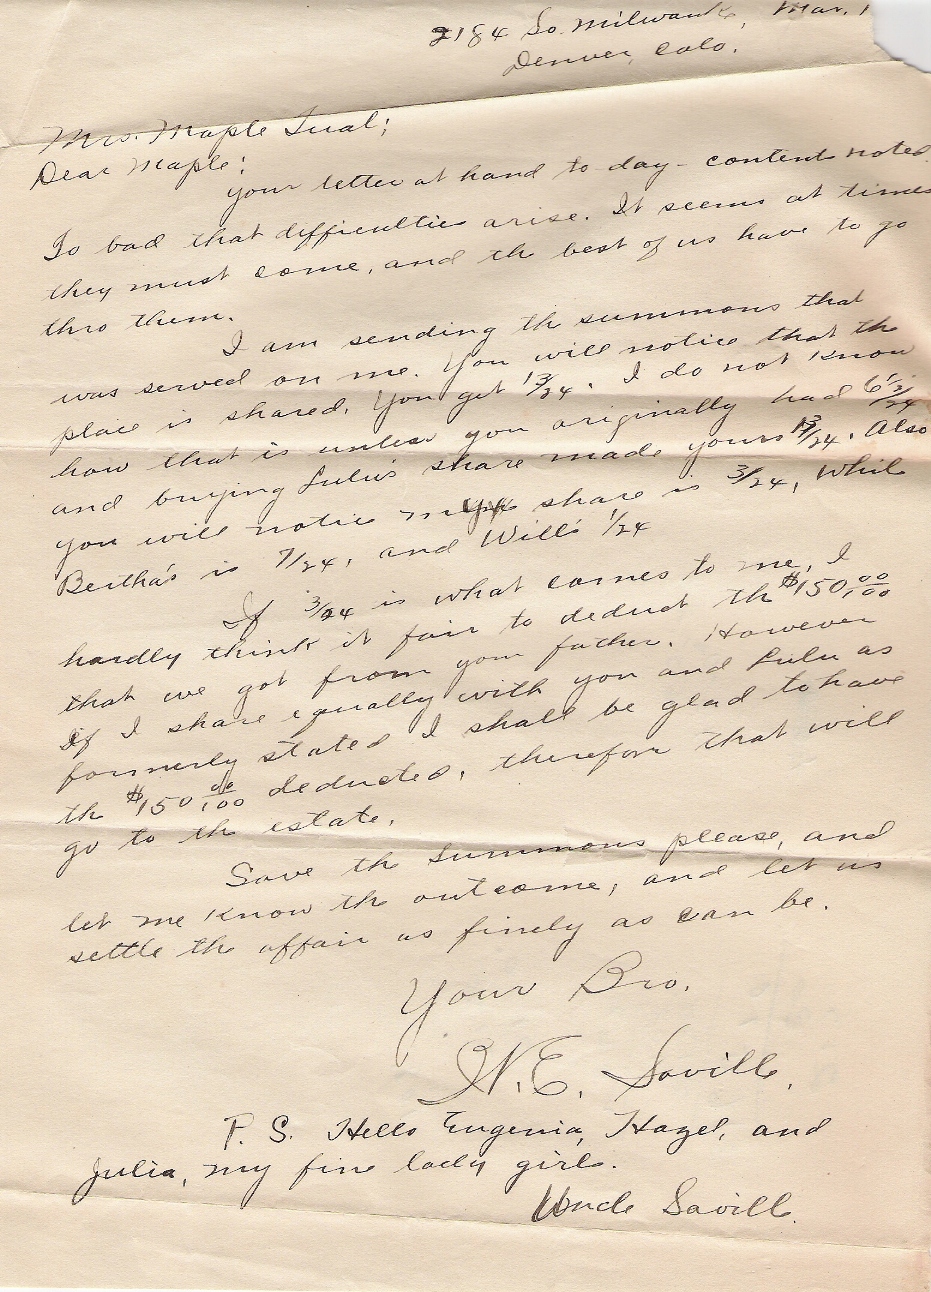 2184 So. Milwauk, Mar. 1
Denver, Colo.
Mrs. Maple Tual;
Dear Maple;
Your letter at hand to day - content noted.
To bad that difficulties arise. It seems at times
they must come, and th best of us have to go
thro them.
I am sending th summons that
was served on me. You will notice that th
place is shared. You get 13/24. I do not know
how that is unless you originally had 6 1/2/24
and buying Lulu's share made yours 13/24. Also
you will notice my share is 3/24, while
Bertha's is 7/24, and Will's 1/24
If 3/24 is what comes to me, I
hardly think it fair to deduct th $150 00/100
that we got from your father. However
if I share equally with you and Lulu as
formerly stated I shall be glad to have
th $150 00/100 deducted, therefore that will
go to th estate.
Save th summons please, and
let me know th outcome, and let us
settle th affair as finely as can be.
Your Bro.
W. E. Saville.
P. S. Hello Eugenia, Hazel, and
Julia, my fine lady girls.
Uncle Saville.